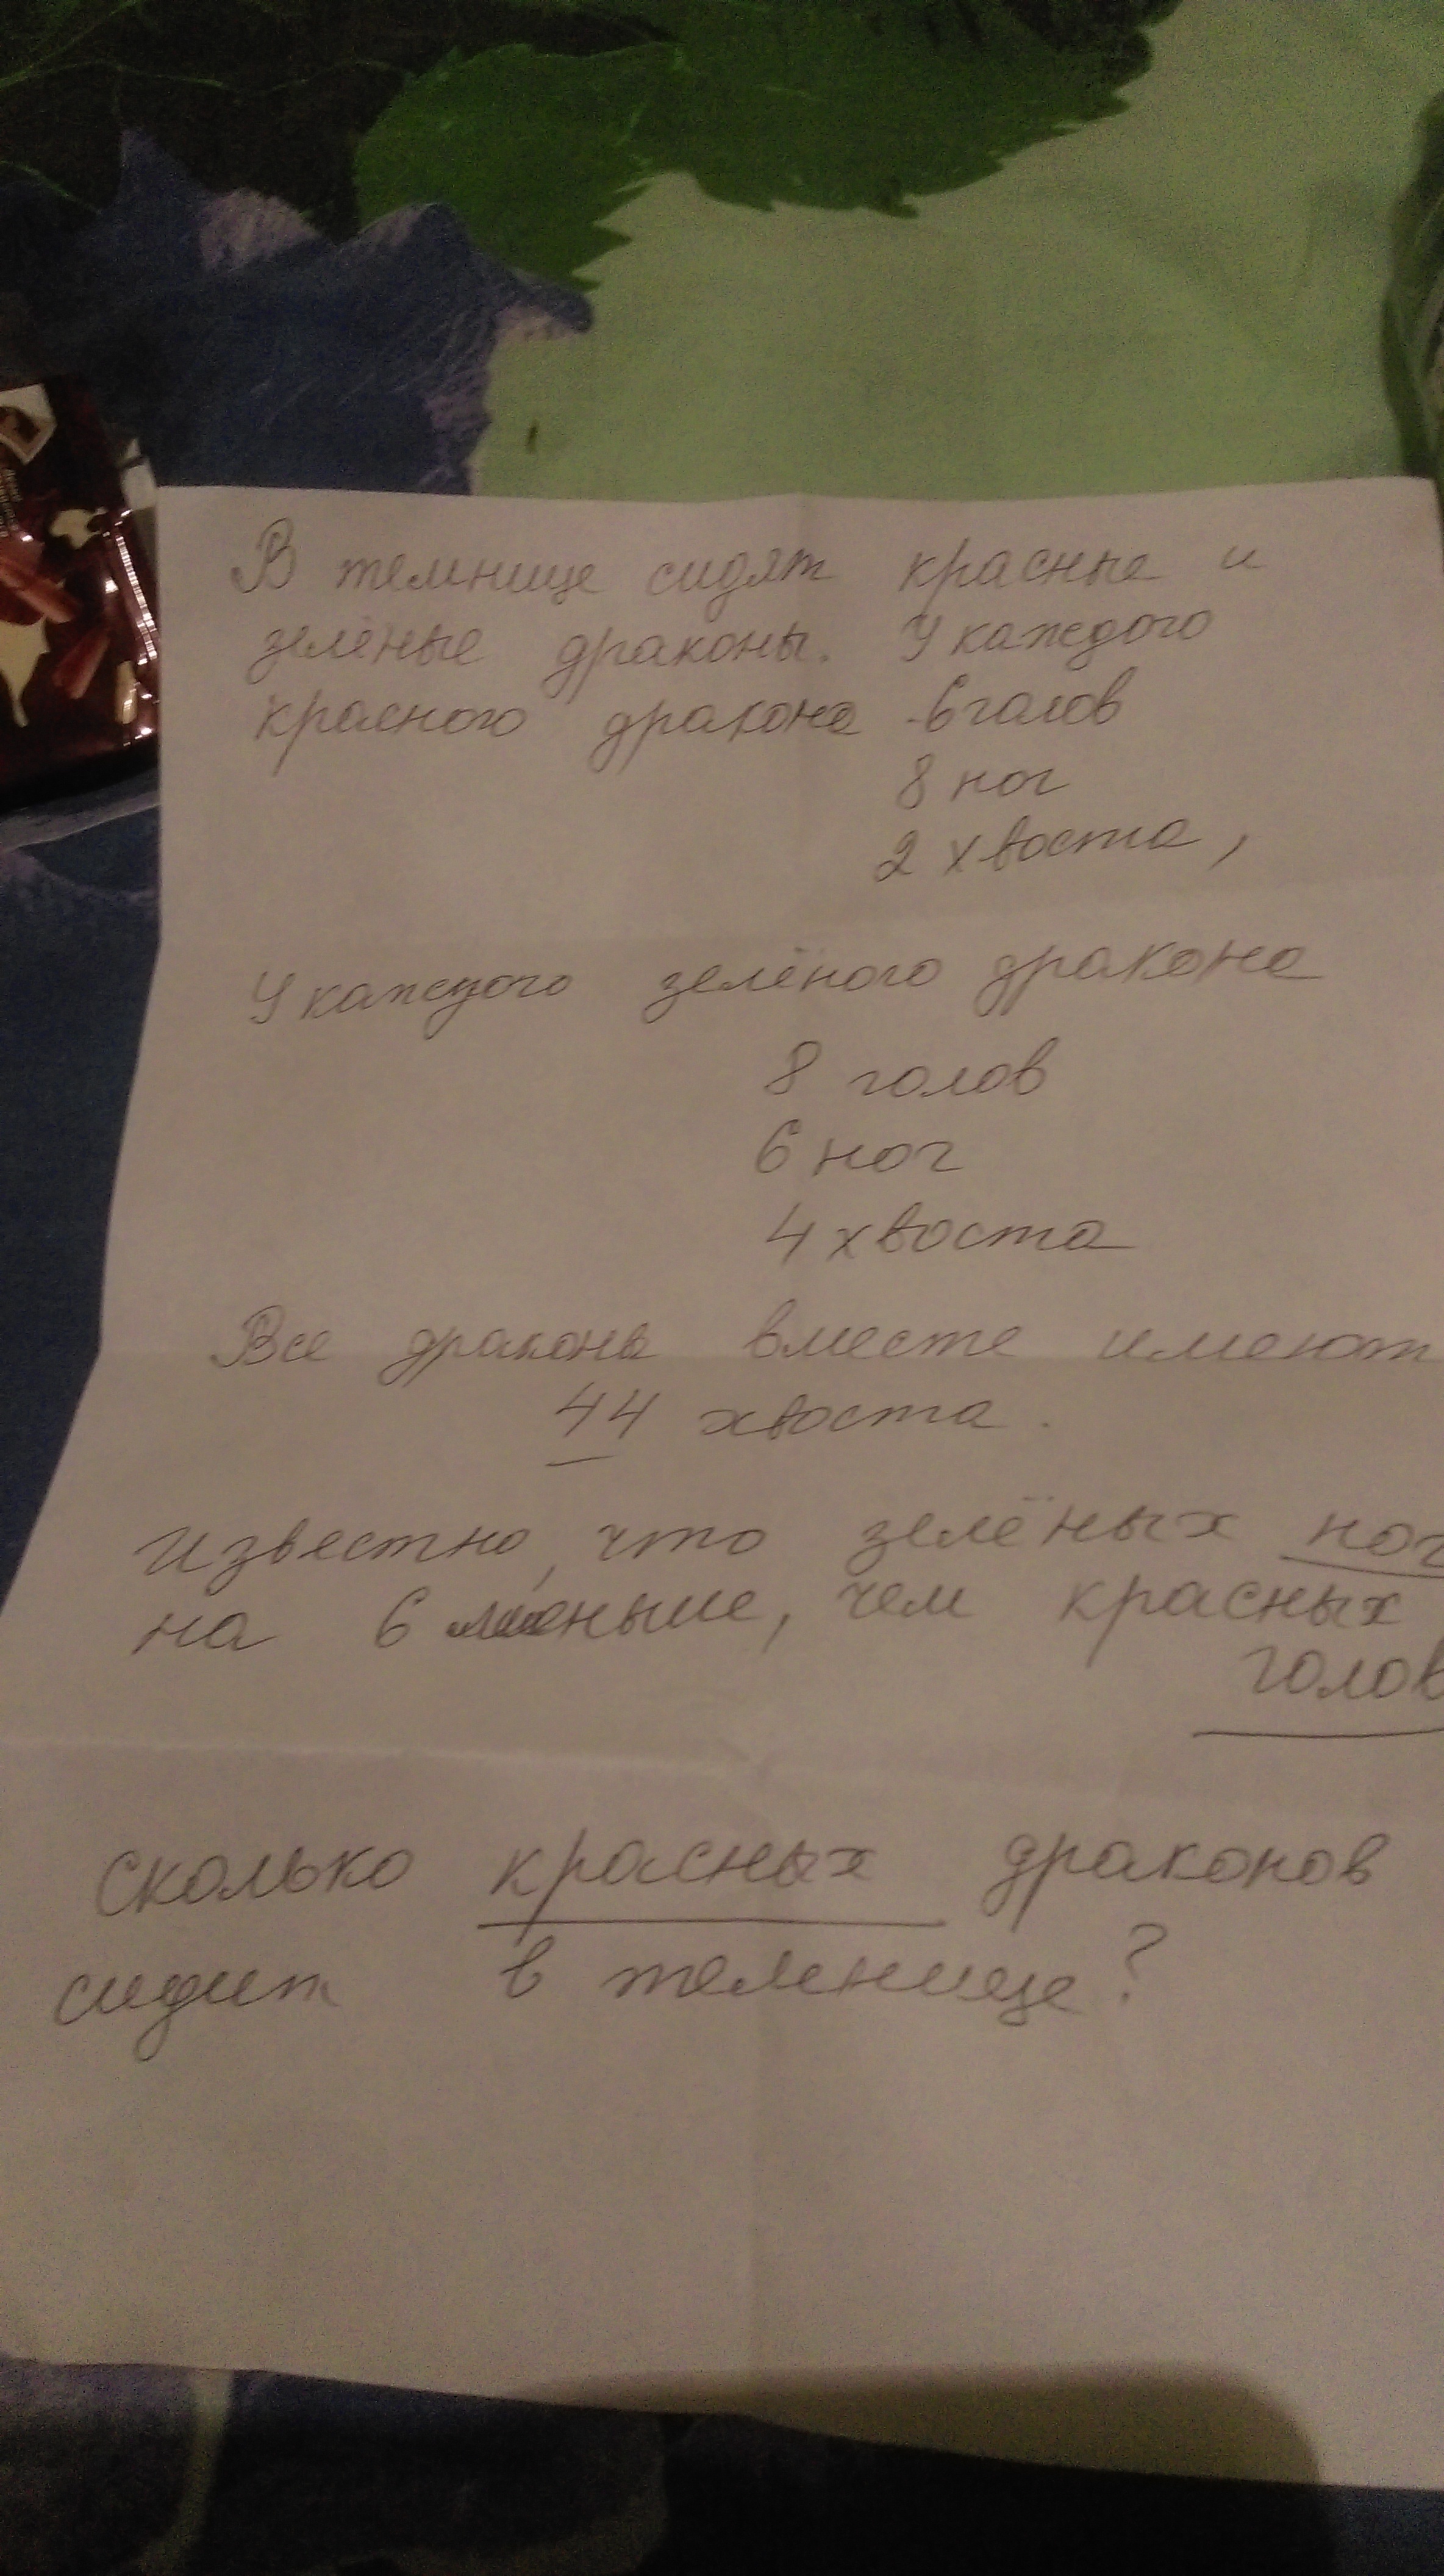 В темнице сидят красные и
зелёные драконы. У каждого
красного дракона - 6 голов
8 ног
2 хвоста,
У каждого зелёного дракона
8 голов
6 ног
4 хвоста
Все драконы вместе имеют
44 хвоста.
Известно, что зелёных ног
на 6 меньше, чем красных
голов
Сколько красных драконов
сидит в темнице?